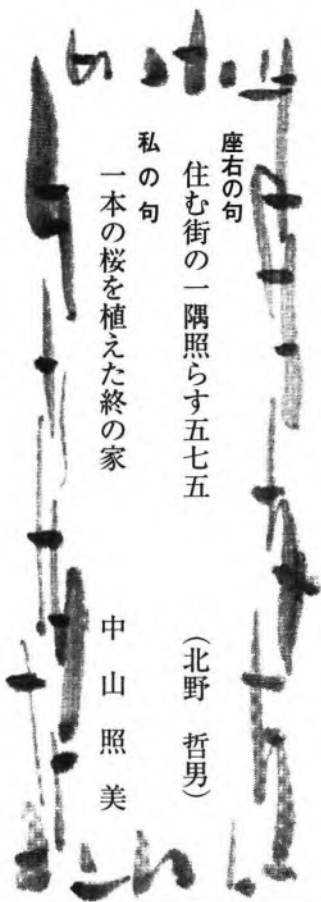 座右の句
住む街の一隅照らす五七五 (北野 哲男)
私の句
一本の桜を植えた終の家 中山照美